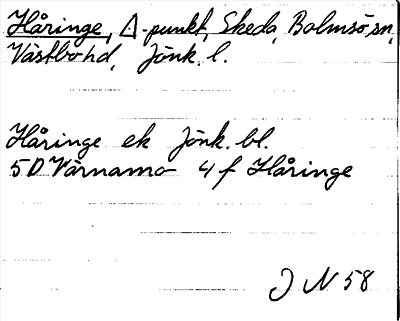 Håringe, Δ-punkt, Skeda, Bolmsö sn,
Västbo hd, Jönk. l.
Håringe ek Jönk. bl.
5D Värnamo 4f Håringe
J N 58